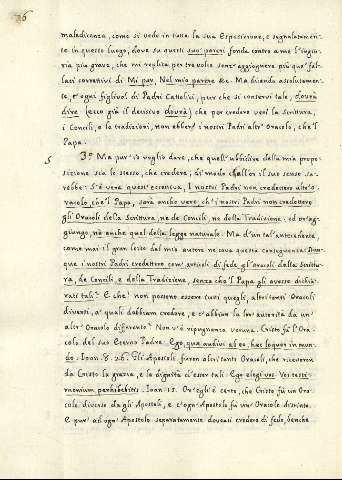 76
maladicenza, come si vede in tutta la sua Esposizione, e segnalatamen-
te in questo luogo, dove su questi suoi pareri fonda contro a me l'ingiu-
ria più grave, che mi replica per tre volte senz'aggiugnere più que' fal-
laci correttivi di Mi par, Nel mio parere &c. Ma dicendo assolutamen-
te, è ogni figliuol di Padri Cattolici, pur che si conservi tale, dovrà
dire (ecco già il decisivo dovrà) che per credere veri la Scrittura,
i Concilj, e la tradizioni, non ebbero i nostri Padri altr' Oracolo, che'l
Papa.
5 3.º Ma pur io voglio dare, che quell' ubbidire della mia propo-
sizione sia lo stesso, che credere; di modo che allor il suo senso sa-
rebbe: S'è vera quest' eccettiva, I nostri Padri non credettero altr' o-
racolo che'l Papa, sarà anche vero, ch' i nostri Padri non credettero
gli Oracoli della Scrittura, ne de Concilj, ne della Tradizione; ed or' ag-
giungo, nè anche quel della legge naturale. Ma d'un tal' antecedente
come mai il gran testo dal mio autore ne cava questa conseguenza: Dun-
que i nostri Padri credettero com' articoli di fede gl'oracoli della Scrittu-
ra, de Concilj, e della Tradizione, senza che'l Papa gli avesse dichia-
rati tali? E che? non possono esser tutti quegli, altri tanti Oracoli
diversi, a' quali dobbiam credere, e ch'abbian la lor' autorità da un'
altr' Oracolo differente? Non v'è ripugnanza veruna. Cristo fu l'Ora-
colo del suo Eterno Padre. Ego, quæ audivi ab eo, hæc loquor in mun-
do. Joan. 8. 26. Gli Apostoli furon altri tanti Oracoli, che riceverono
da Cristo la grazia, e la dignità d'esser tali: Ego elegi vos. Vos testi-
monium perhibebitis. Joan. 15. Or' egli è certo, che Cristo fu un Ora-
colo diverso dagli Apostoli, e ch'ogn' Apostolo fu un' Oracolo distinto.
E pur' ad ogn' Apostolo separatamente doveasi credere di fede, benche